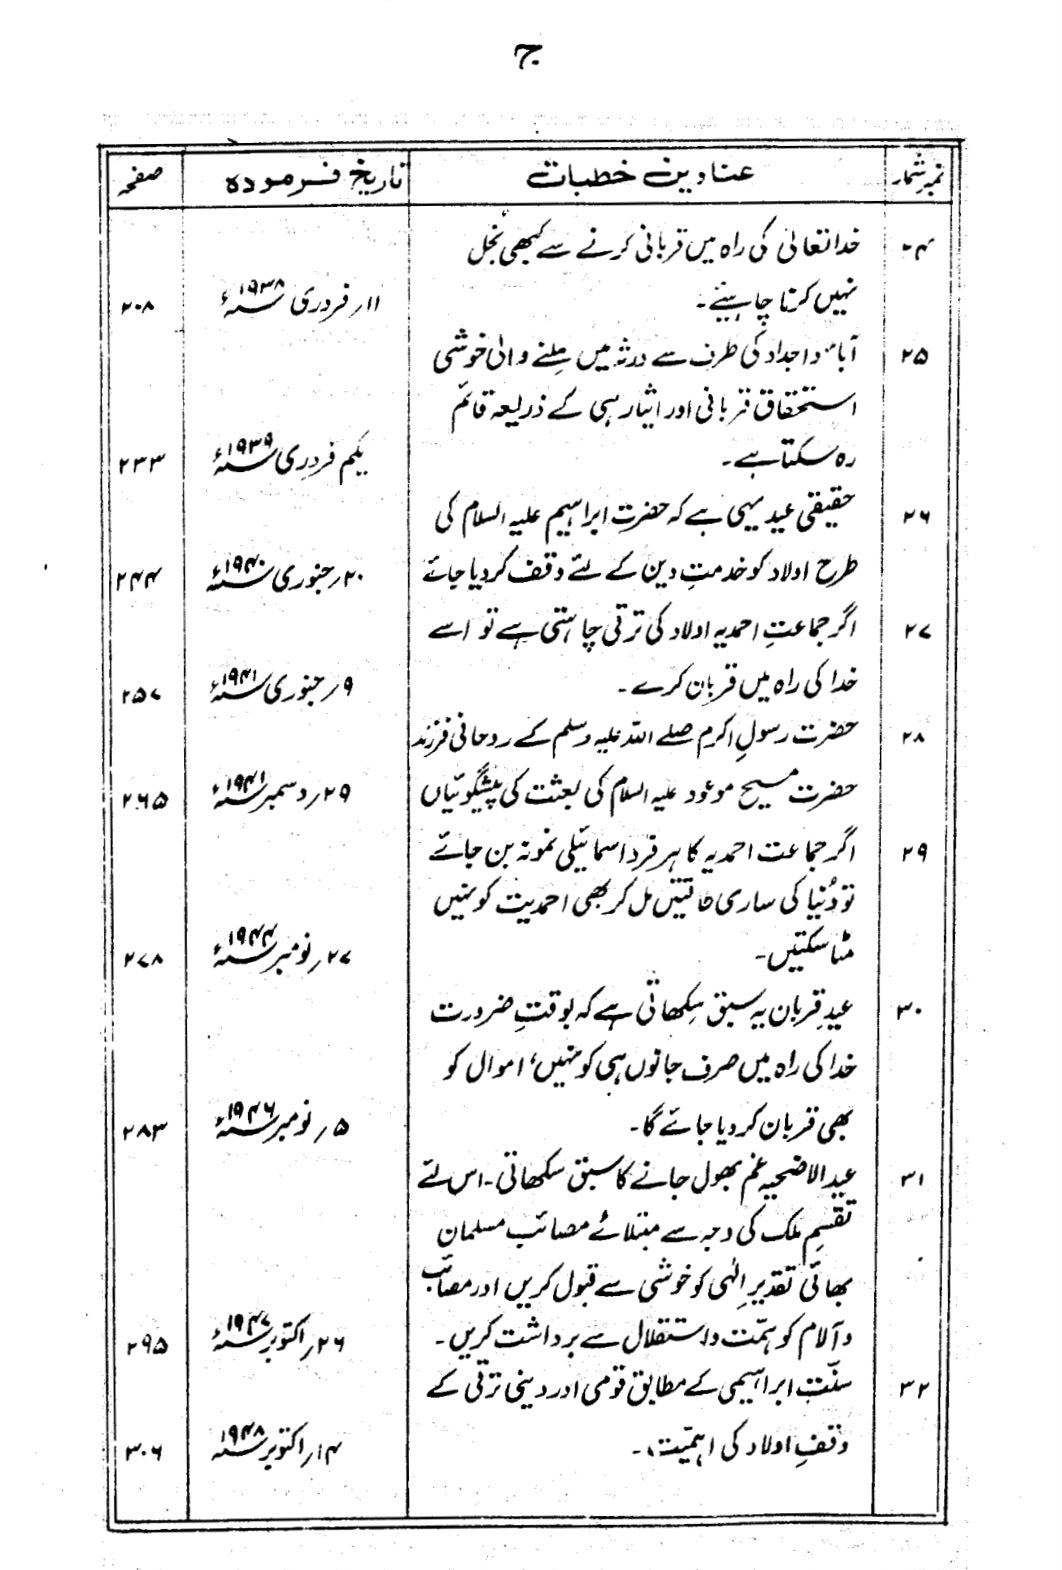 ج
نمبر شمار عناوین خطبات تاریخ فرمودہ صفحہ
۲۴ خدا تعالیٰ کی راہ میں قربانی کرنے سے کبھی بخل
نہیں کرنا چاہیئے۔ ۱۱؍ فروری ۱۹۳۸ء ۲۰۸
۲۵ آباء و اجداد کی طرف سے ورثہ میں ملنے والی خوشی
استحقاق قربانی اور ایثار ہی کے ذریعہ قائم
رہ سکتا ہے۔ یکم فروری ۱۹۳۹ء ۲۳۳
۲۶ حقیقی عید یہی ہے کہ حضرت ابراہیم علیہ السلام کی
طرح اولاد کو خدمتِ دین کے لئے وقف کر دیا جائے ۲۰؍ جنوری ۱۹۴۰ء ۲۴۴
۲۷ اگر جماعتِ احمدیہ اولاد کی ترقی چاہتی ہے تو اسے
خدا کی راہ میں قربان کرے۔ ۹؍ جنوری ۱۹۴۱ء ۲۵۷
۲۸ حضرت رسولِ اکرم صلے اللہ علیہ وسلم کے روحانی فرزند
حضرت مسیح موعود علیہ السلام کی بعثت کی پیشگوئیاں ۲۹؍ دسمبر ۱۹۴۱ء ۲۶۵
۲۹ اگر جماعت احمدیہ کا ہر فرد اسمائیلی نمونہ بن جائے
تو دُنیا کی ساری طاقتیں مل کر بھی احمدیت کو نہیں
مٹا سکتیں۔ ۲۷؍ نومبر ۱۹۴۴ء ۲۷۸
۳۰ عیدِ قربان یہ سبق سِکھاتی ہے کہ بوقتِ ضرورت
خدا کی راہ میں صرف جانوں ہی کو نہیں، اموال کو
بھی قربان کر دیا جائے گا۔ ۵؍ نومبر ۱۹۴۶ء ۲۸۳
۳۱ عید الاضحیہ غم بھول جانے کا سبق سکھاتی۔ اس لئے
تقسیمِ ملک کی وجہ سے مبتلائے مصائب مسلمان
بھائی تقدیرِ الٰہی کو خوشی سے قبول کریں اور مصائب
و آلام کو ہمّت و استقلال سے برداشت کریں۔ ۲۶؍ اکتوبر ۱۹۴۷ء ۲۹۵
۳۲ سنّتِ ابراہیمی کے مطابق قومی اور دینی ترقی کے
وقفِ اولاد کی اہمیّت۔ ۱۴؍ اکتوبر ۱۹۴۸ ۳۰۶